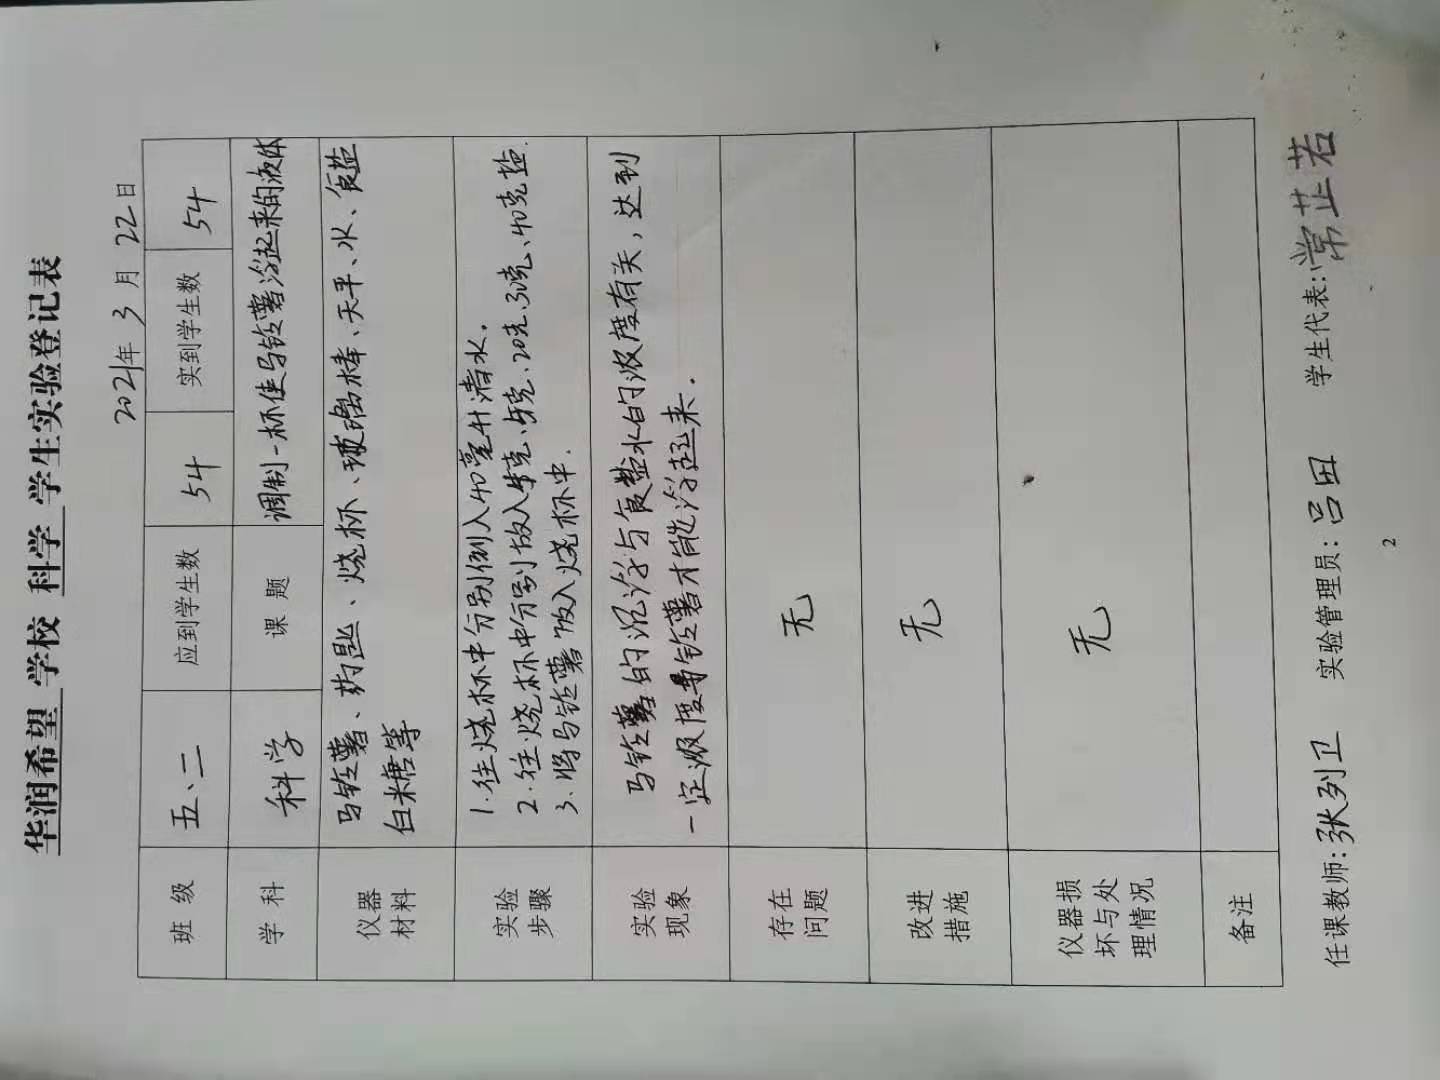 华润希望 学校 科学 学生实验登记表
2021年 3 月 22 日
班 级 五、二 应到学生数 54 实到学生数 54
学 科 科学 课 题 调制一杯使马铃薯浮起来的液体
仪器
材料
马铃薯、药匙、烧杯、玻璃棒、天平、水、食盐
白糖等
实验
步骤
1.往烧杯中分别倒入40毫升清水.
2.往烧杯中分别放入 克、20克、30克、40克盐.
3.将马铃薯放入烧杯中.
实验
现象
马铃薯的沉浮与食盐水的浓度有关,达到
一定浓度马铃薯才能浮起来.
存在
问题
无
改进
措施
无
仪器损
坏与处
理情况
无
备注
任课教师:张列卫 实验管理员:吕田 学生代表:常芷若
2